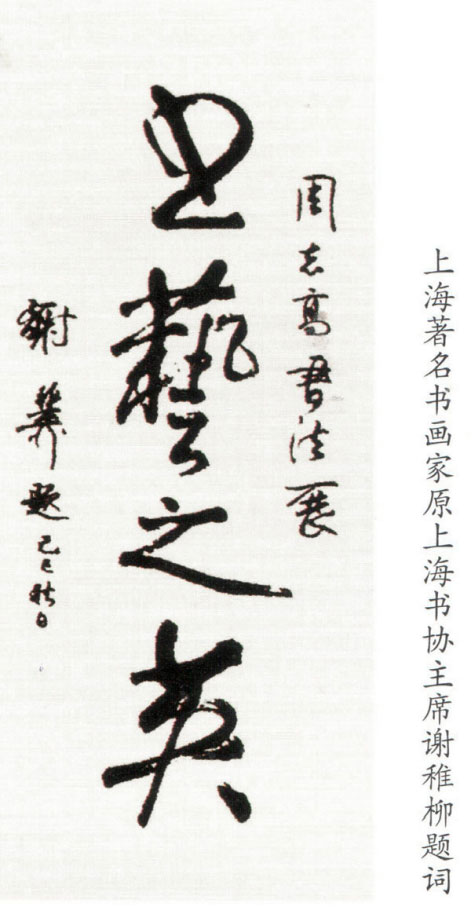 上海著名书画家原上海书协主席谢稚柳题词
周志高書法展
書藝之英
謝稚題己巳秋日